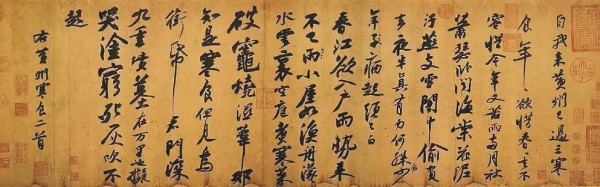 自我來黃州已過三寒
食年年欲惜春春去不
容惜今年又苦雨兩月秋
蕭瑟臥聞海棠花泥
污燕支雪闇中偷負
去夜半真有力何殊少
年子病起須已白
春江欲入戶雨勢來
不已雨小屋如漁舟濛濛
水雲裏空庖煮寒菜
破竈燒濕葦那
知是寒食但見烏
銜帋君門深
九重墳墓在萬里也擬
哭塗窮死灰吹不
起
右黃州寒食二首